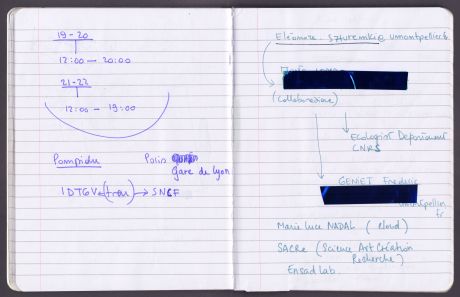 19-20
12:00 — 20:00
21-22
12:00 — 19:00
Pompidu
Paris
Gare de Lyon
IDTGV (train) → SNCF
Eléonore
(Collaboratrice)
Ecologist Department
CNRS
GENIET Frederic
fr
Marie Luce NADAL (Cloud)
SACRe (Science Art Création
Recherche)
Ensad Lab.